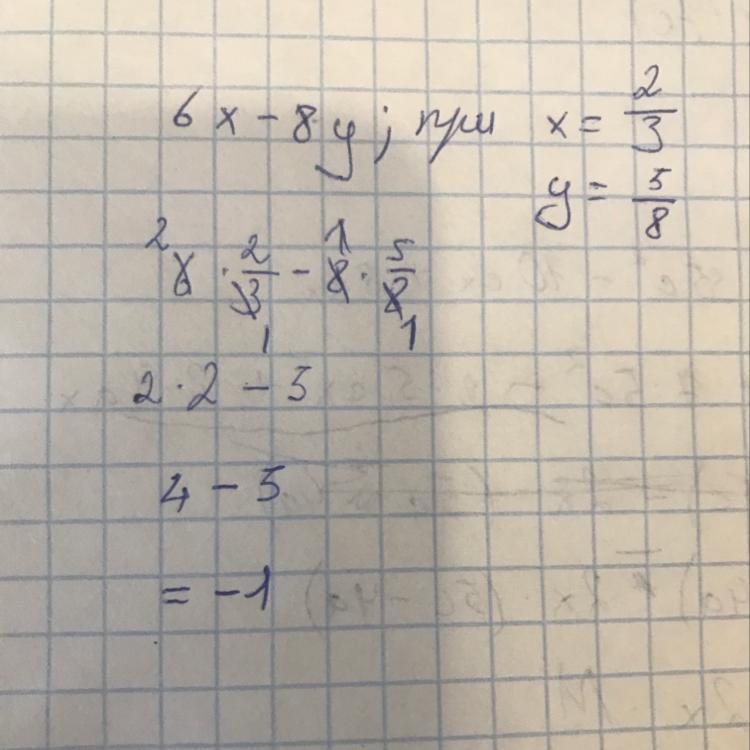 6x - 8y; при x = 2/3
y = 5/8
2 6 · 2/3 1 - 1 8 · 5/8 1
2 · 2 - 5
4 - 5
= -1